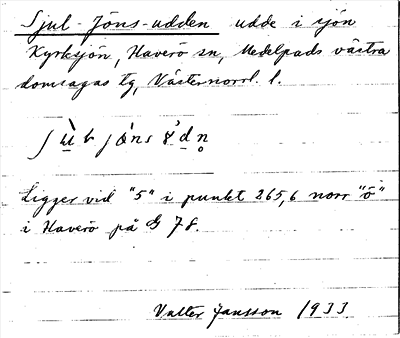 Sjul-Jöns-udden udde i sjön
Kyrksjön, Haverö sn, Medelpads västra
domsagas tg, Västernorrl. l.
Ligger vid "5" i punkt 265,6 norr "ö"
i Haverö på G 78.
Valter Jansson 1933